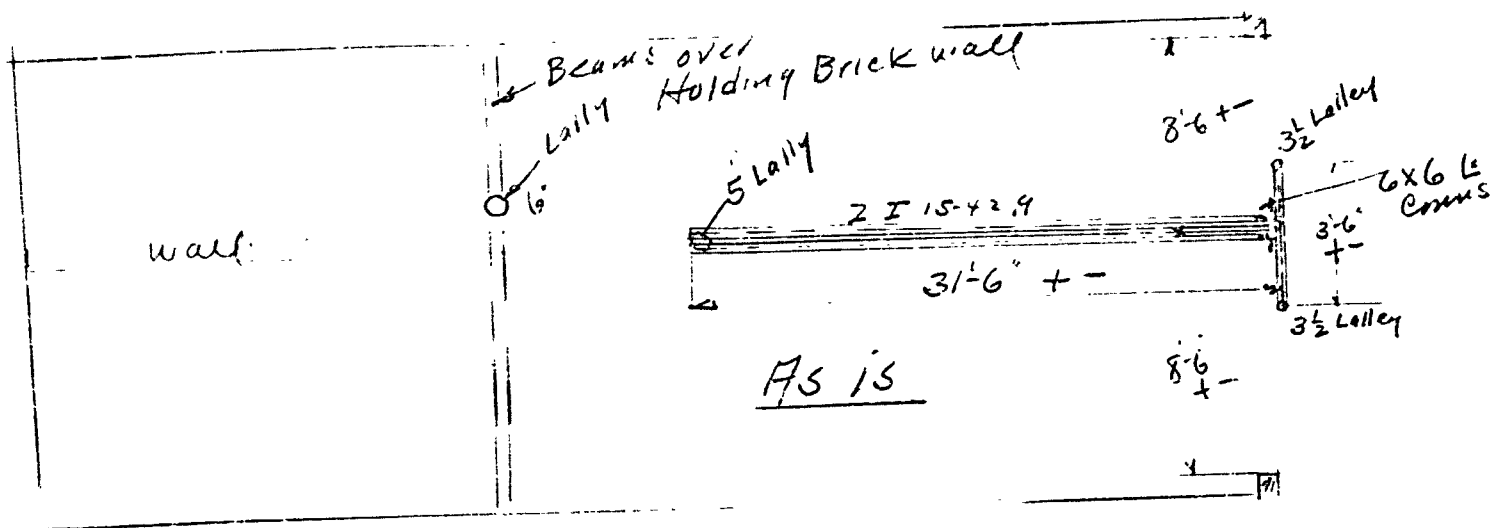 Beams over
Holding Brick wall
Lally
6"
wall
5 Lally
2 I 15-42.9
31'-6" + -
As is
8'-6 + -
3½ Lalley
6x6 Ls
3'-6"
+ -
3½ Lalley
8'-6
+ -